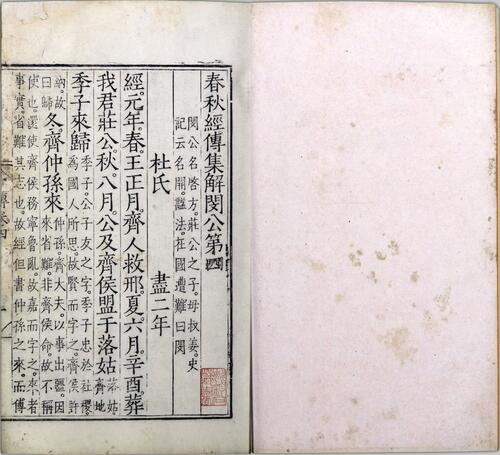 春秋經傳集解閔公第四
閔公名啓方莊公之子母叔姜史
記云名開諡法在國遭難曰閔
杜氏 盡二年
經元年春王正月齊人救邢夏六月辛酉葬
我君莊公秋八月公及齊侯盟于落姑落姑
齊地
季子來歸季子公子友之字季子忠於社稷
為國人所思故賢而字之齊侯許
納故
曰歸冬齊仲孫來仲孫齊大夫以事出疆因
來省難非齊侯命故不稱
使也還使齊侯務寧魯亂故嘉而字之來者
事實省難其志也故經但書仲孫之來而傳